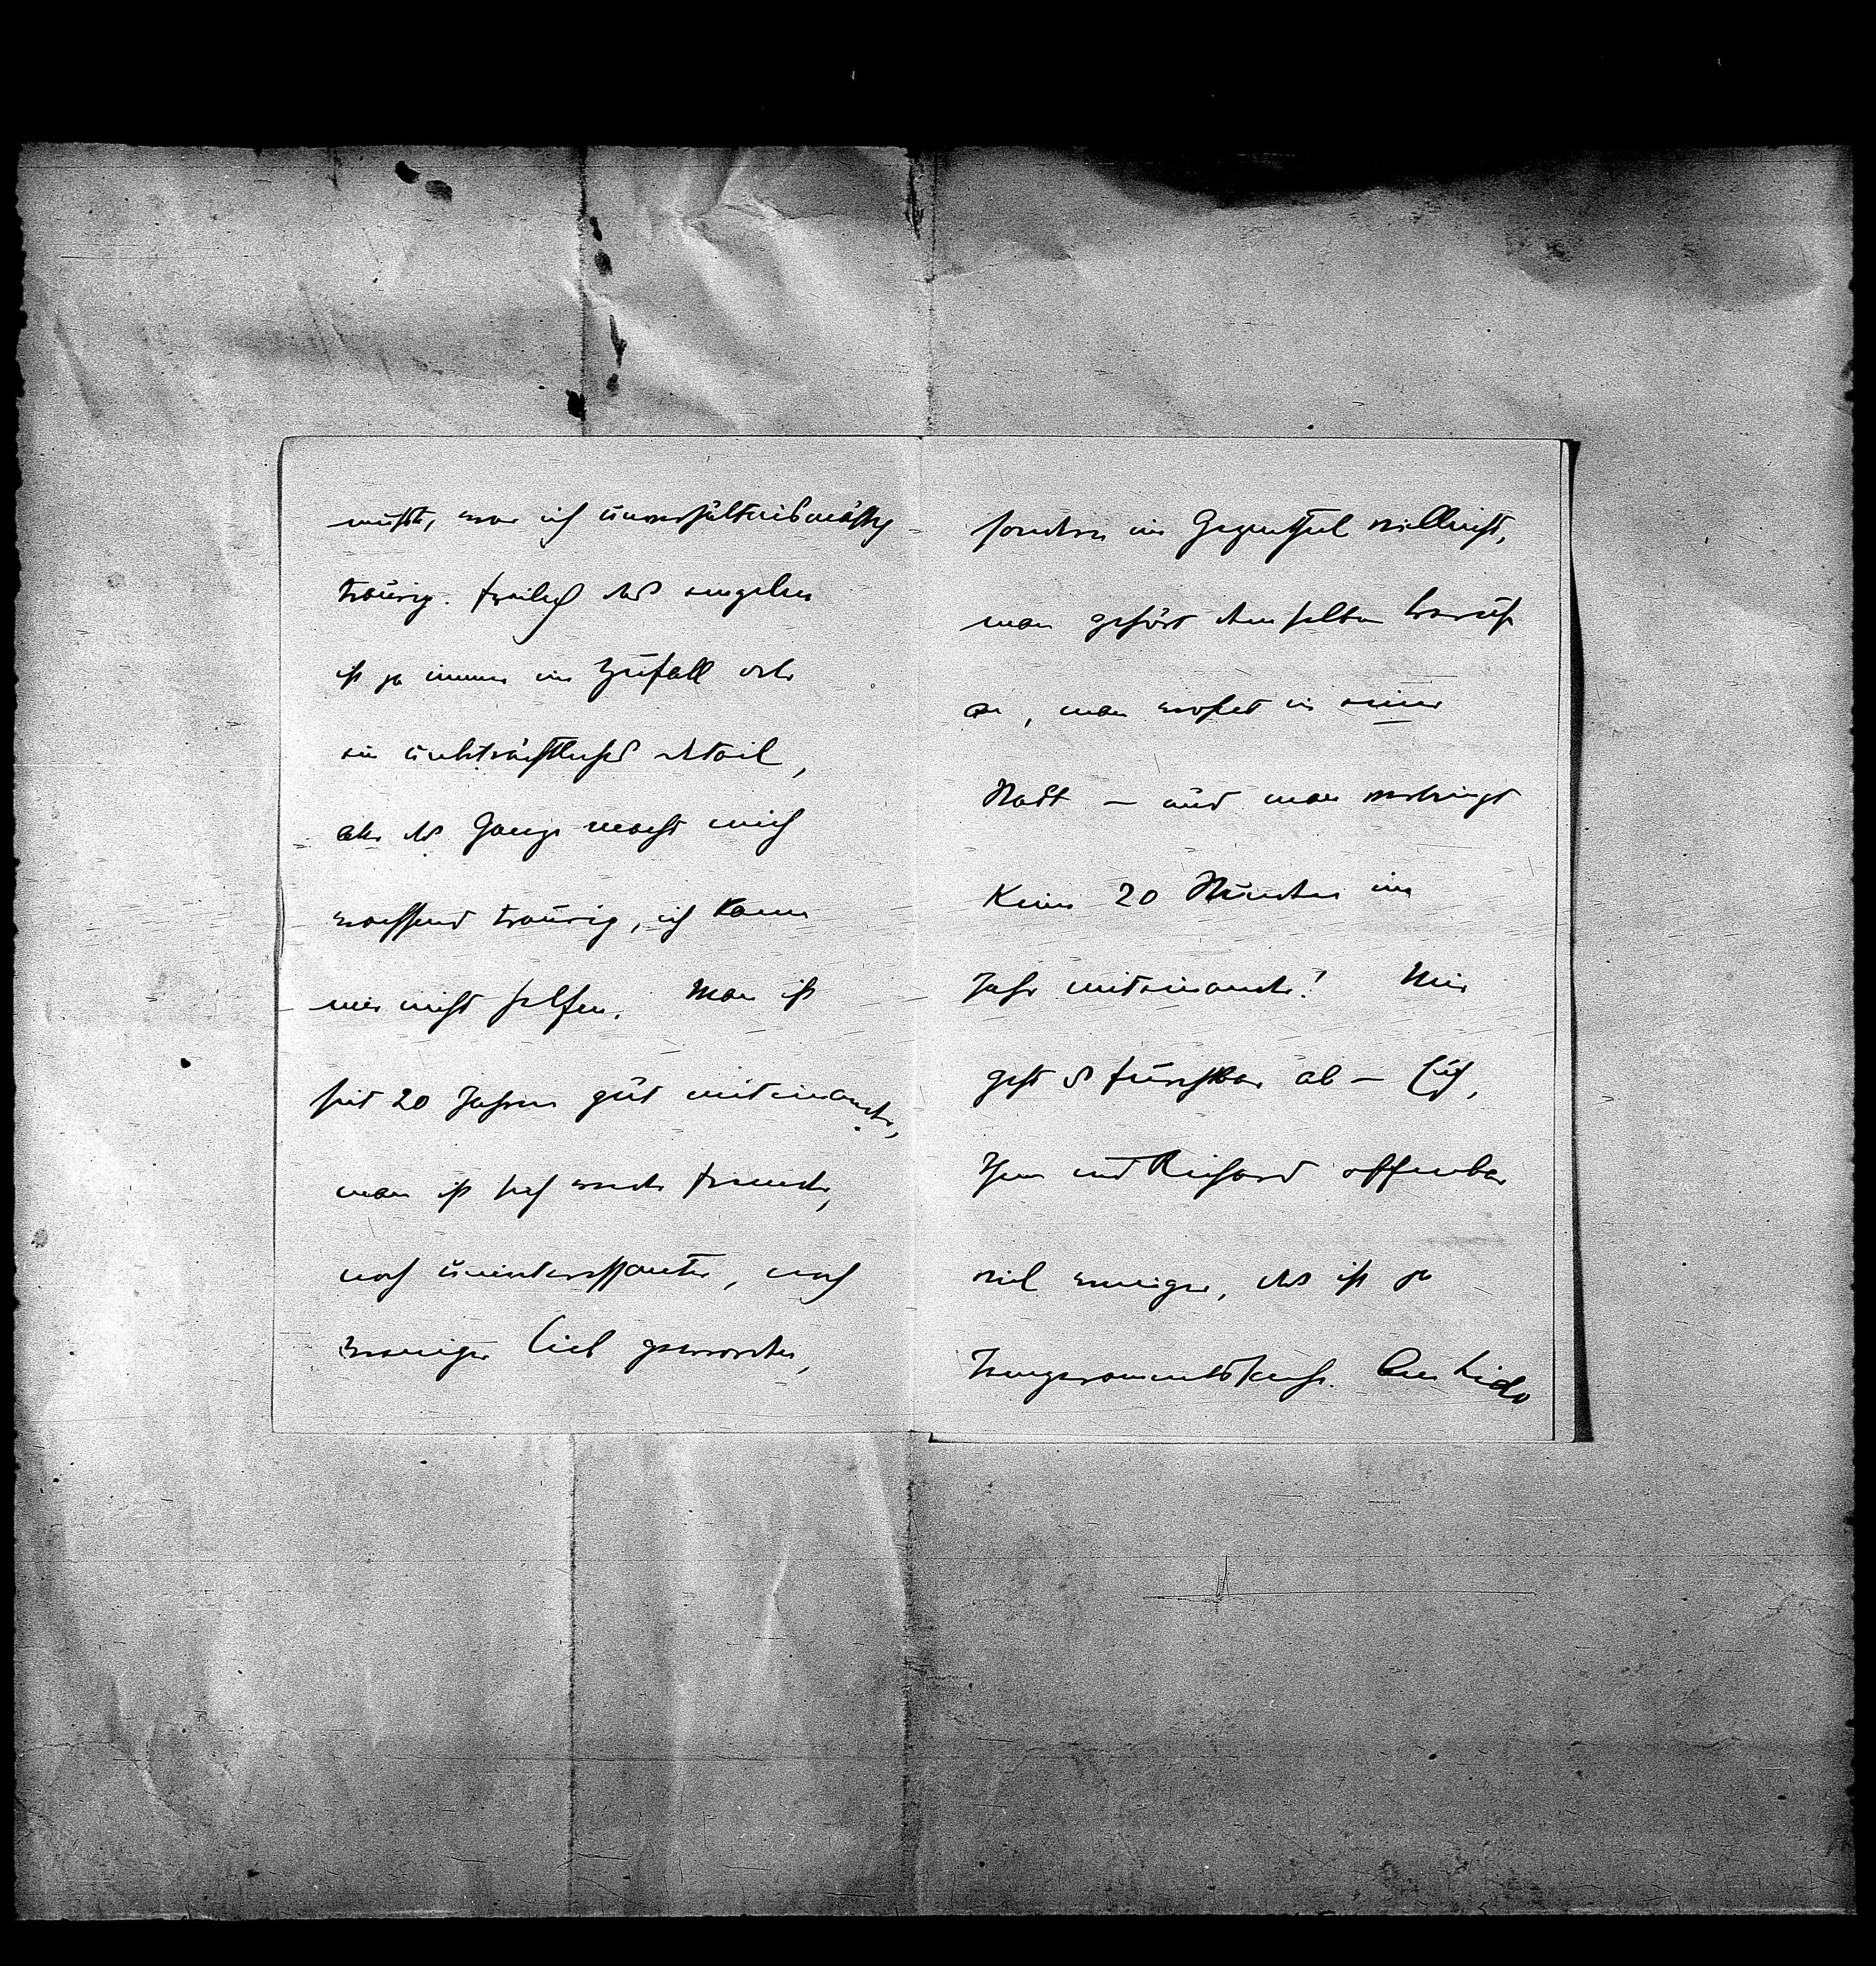 mußte, war ich unverhältnismäßig
traurig. freilich das einzelne
ist ja immer ein Zufall oder
ein unbeträchtliches detail,
aber das Ganze macht mich
wachsend traurig, ich kann
mir nicht helfen. Man ist
seit 20 Jahren gut miteinander,
man ist sich weder fremder,
noch uninteressanter, noch
weniger lieb geworden,
sondern im Gegentheil vielleicht,
man gehört demselben Beruf
an, man wohnt in einer
Stadt – und man verbringt
keine 20 Stunden im
Jahr miteinander! Mir
geht es furchtbar ab – Euch,
Ihnen und Richard offenbar
viel weniger, das ist ja
Temperamentssache. Am Lido